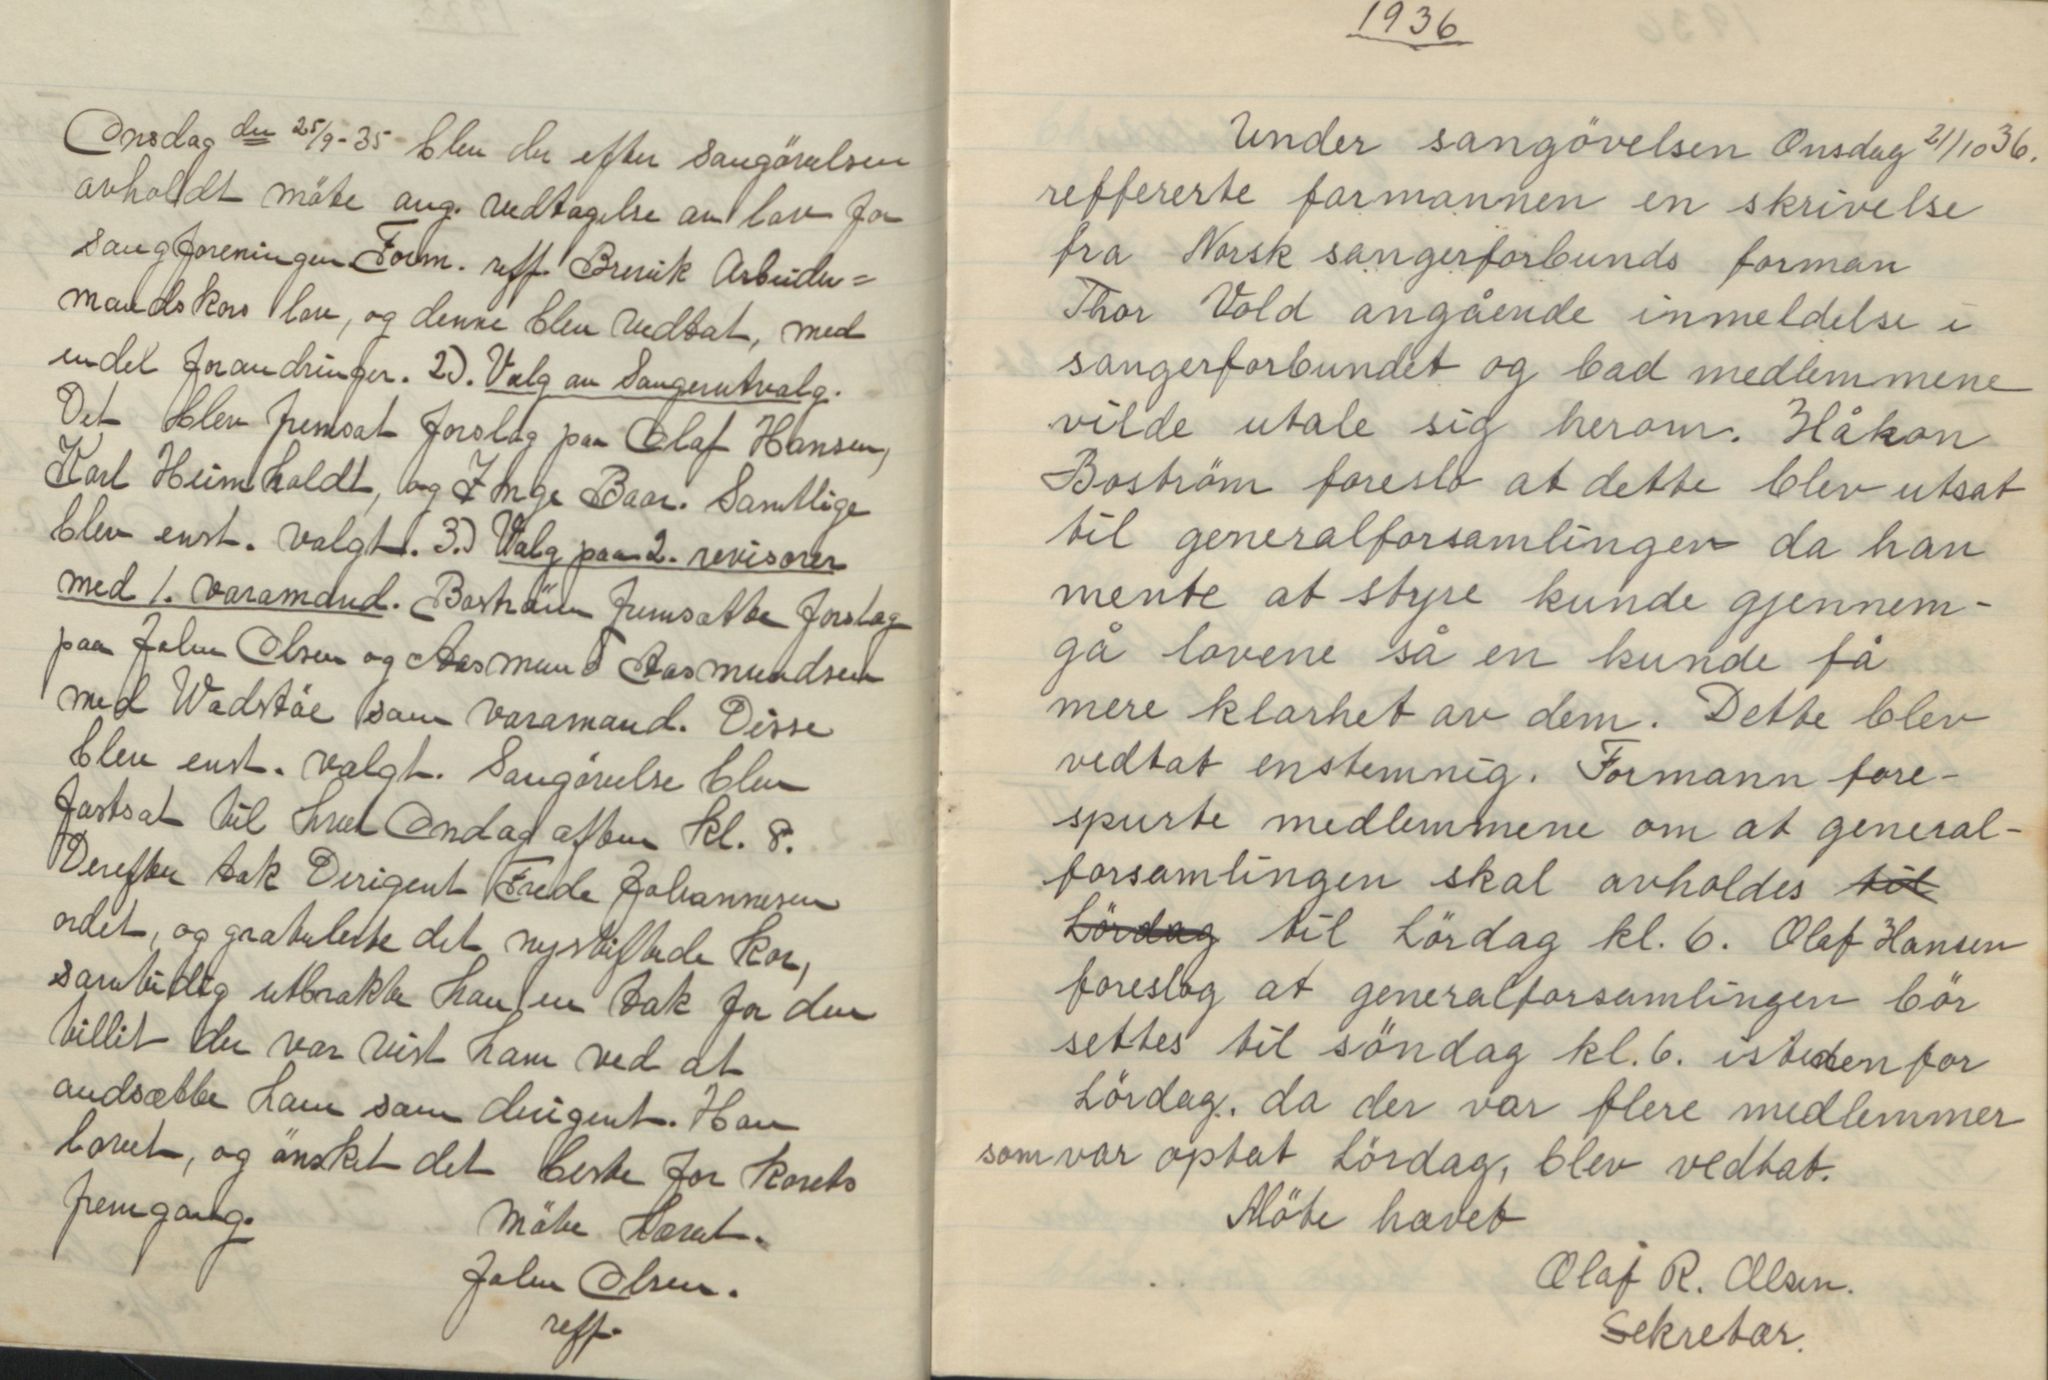 Onsdag den 25/9-35 blev der efter sangövelsen
avholdt möte ang. vedtagelse av lov for
sangforeningen. Form. reff. Brevik Arbeider=
mandskors lov, og denne blev vedtat, med
endel forandringer. 2). Valg av Sangerutvalg.
Det blev fremsat forslag paa Olaf Hansen,
Karl Heimholdt, og Inge Baar. Samtlige
blev enst. valgt. 3.) Valg paa 2. revisorer
med 1. varamand. Boström fremsatte forslag
paa John Olsen og Aasmund Aasmundsen
med Wadstöe som varamand. Disse
blev enst. valgt. Sangövelse blev
fastsat til hver Ondag aften kl. 8.
Derefter tok Dirigent Frede Johannesen
ordet, og gratulerte det nystiftede kor,
samtidig utbrakte han en takk for den
tillit der var vist ham ved at
andsætte ham som dirigent. Han
lovet, og önsket det beste for korets
fremgang.
Möte hævet.
John Olsen.
reff.
1936
Under sangövelsen Onsdag 21/10 36.
reffererte formannen en skrivelse
fra Norsk sangerforbunds forman
Thor Vold angående inmeldelse i
sangerforbundet og bad medlemmene
vilde utale sig herom. Håkon
Boström foreslo at dette blev utsat
til generalforsamlingen da han
mente at styre kunde gjennem-
gå lovene så en kunde få
mere klarhet av dem. Dette blev
vedtat enstemnig. Formann fore-
spurte medlemmene om at general-
forsamlingen skal avholdes til
Lördag til Lördag kl. 6. Olaf Hansen
foreslog at generalforsamlingen bör
settes til söndag kl. 6. isteden for
Lördag. da der var flere medlemmer
som var optat Lördag, blev vedtat.
Möte hævet
Olaf R. Olsen.
Sekretær.